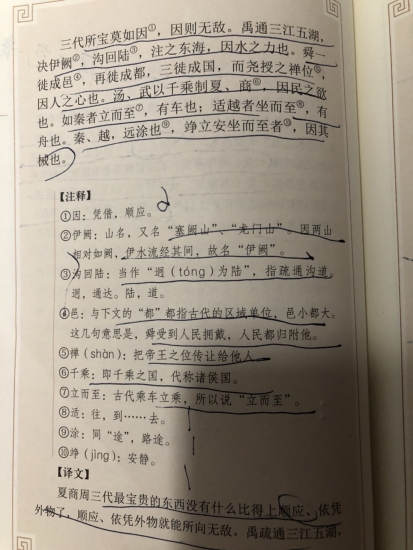 三代所宝莫如因①，因则无敌。禹通三江五湖，
决伊阙②，沟回陆③，注之东海，因水之力也。舜一
徙成邑④，再徙成都，三徙成国，而尧授之禅位⑤，
因人之心也。汤、武以千乘制夏、商⑥，因民之欲
也。如秦者立而至⑦，有车也；适越者坐而至⑧，有
舟也。秦、越，远涂也⑨，竫立安坐而至者⑩，因其
械也。
【注释】
①因：凭借，顺应。
②伊阙：山名，又名“塞阙山”、“龙门山”。因两山
相对如阙，伊水流经其间，故名“伊阙”。
③沟回陆：当作“迵（tóng）为陆”，指疏通沟道。
迵，通达。陆，道。
④邑：与下文的“都”都指古代的区域单位，邑小都大。
这几句意思是，舜受到人民拥戴，人民都归附他。
⑤禅（shàn）：把帝王之位传让给他人。
⑥千乘：即千乘之国，代称诸侯国。
⑦立而至：古代乘车立乘，所以说“立而至”。
⑧适：往，到……去。
⑨涂：同“途”，路途。
⑩竫（jìng）：安静。
【译文】
夏商周三代最宝贵的东西没有什么比得上顺应、依凭
外物了，顺应、依凭外物就能所向无敌。禹疏通三江五湖，